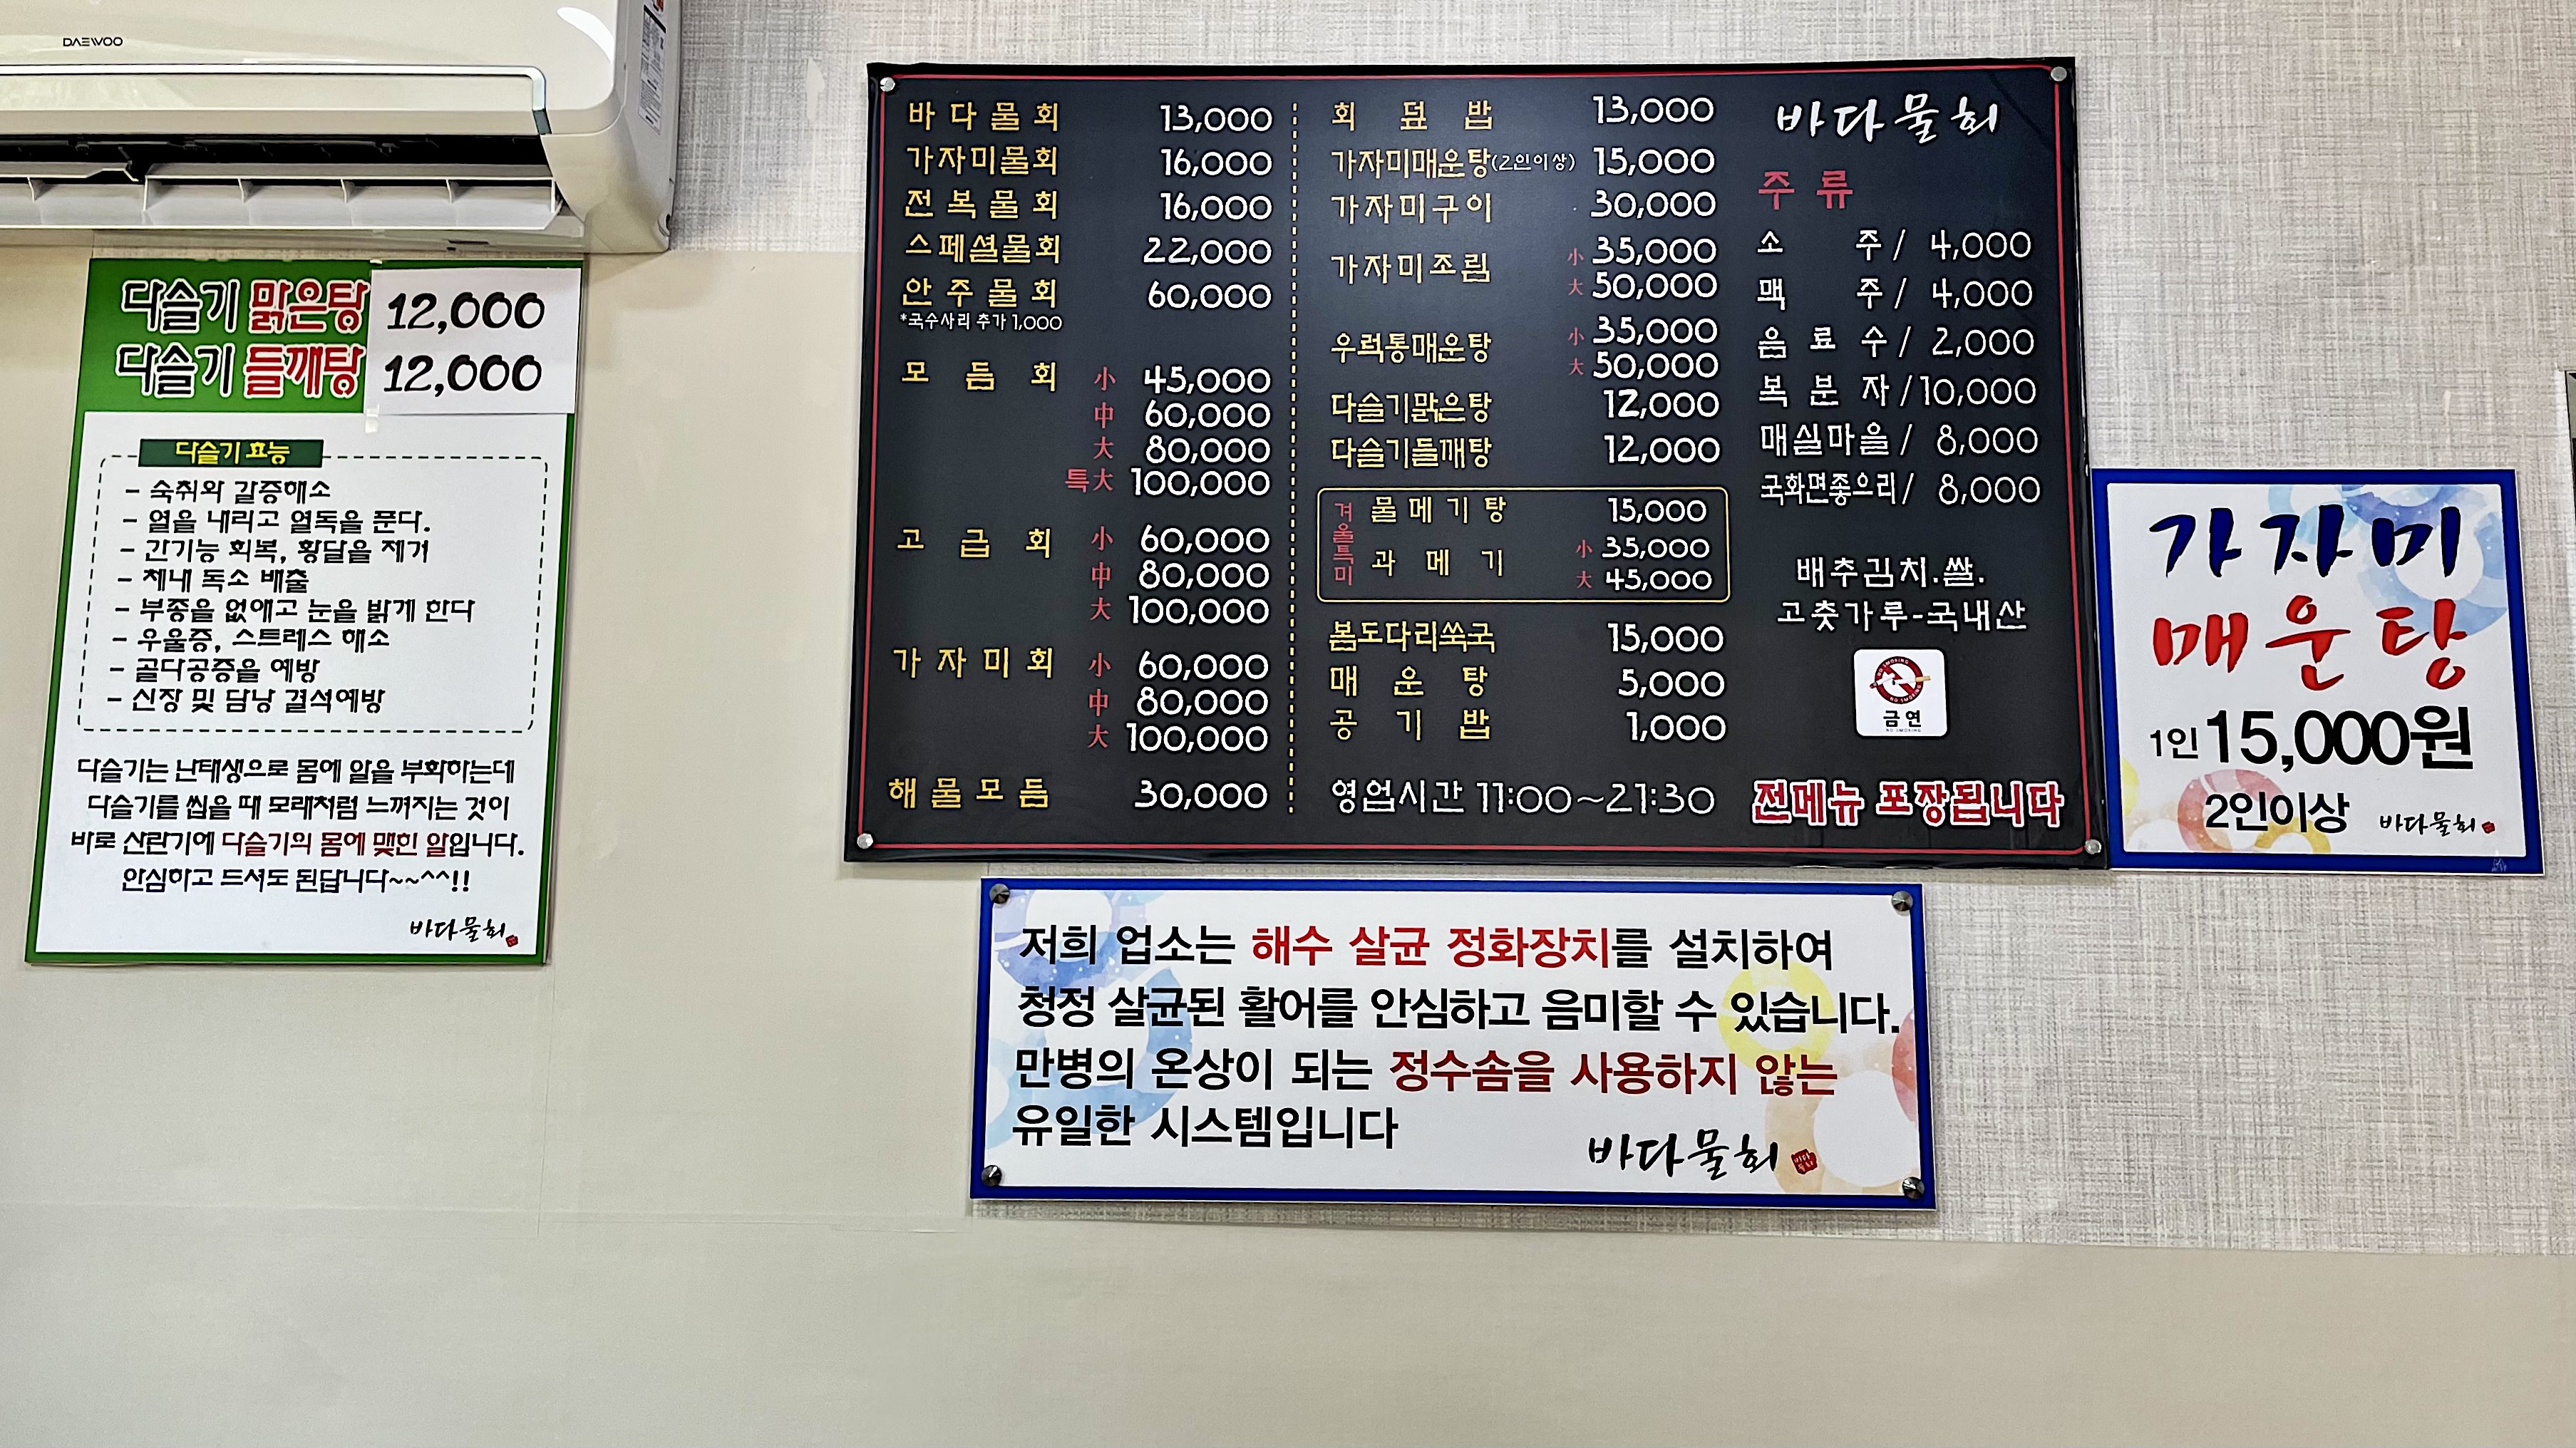 DAEWOO
다슬기 맑은탕 12,000
다슬기 들깨탕 12,000
다슬기 효능
- 숙취와 갈증해소
- 열을 내리고 열독을 푼다.
- 간기능 회복, 황달을 제거
- 체내 독소 배출
- 부종을 없애고 눈을 밝게 한다
- 우울증, 스트레스 해소
- 골다공증을 예방
- 신장 및 담낭 결석예방
다슬기는 난태생으로 몸에 알을 부화하는데
다슬기를 씹을 때 모래처럼 느껴지는 것이
바로 산란기에 다슬기의 몸에 맺힌 알입니다.
안심하고 드셔도 된답니다~~^^!!
바다물회
바다물회 13,000
가자미물회 16,000
전복물회 16,000
스페셜물회 22,000
안주물회 60,000
*국수사리 추가 1,000
모듬회 小 45,000
中 60,000
大 80,000
특大 100,000
고급회 小 60,000
中 80,000
大 100,000
가자미회 小 60,000
中 80,000
大 100,000
해물모듬 30,000
회덮밥 13,000
가자미매운탕(2인이상) 15,000
가자미구이 30,000
가자미조림 小 35,000
大 50,000
우럭통매운탕 小 35,000
大 50,000
다슬기맑은탕 12,000
다슬기들깨탕 12,000
겨울특미
물메기탕 15,000
과메기 小 35,000
大 45,000
봄도다리쑥국 15,000
매운탕 5,000
공기밥 1,000
영업시간 11:00~21:30
바다물회
주류
소주/ 4,000
맥주/ 4,000
음료수/ 2,000
복분자/10,000
매실마을/ 8,000
국화면좋으리/ 8,000
배추김치.쌀.
고춧가루-국내산
NO SMOKING
금연
NO SMOKING
전메뉴 포장됩니다
가자미
매운탕
1인 15,000원
2인이상
바다물회
저희 업소는 해수 살균 정화장치를 설치하여
청정 살균된 활어를 안심하고 음미할 수 있습니다.
만병의 온상이 되는 정수솜을 사용하지 않는
유일한 시스템입니다
바다물회